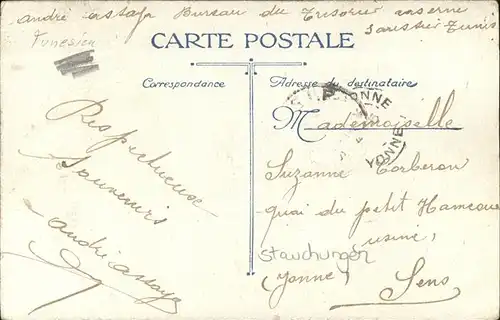 andré assaya Bureau du Trésorier caserne
Tunesien
Tunis
CARTE POSTALE
Correspondance
Adresse du destinataire
YONNE
Mademoiselle
YONNE
Respectueuse
Souvenirs
andré assaya
Suzanne Corberon
quai du petit Hameau
usine,
Stauchungen
(Yonne) Sens